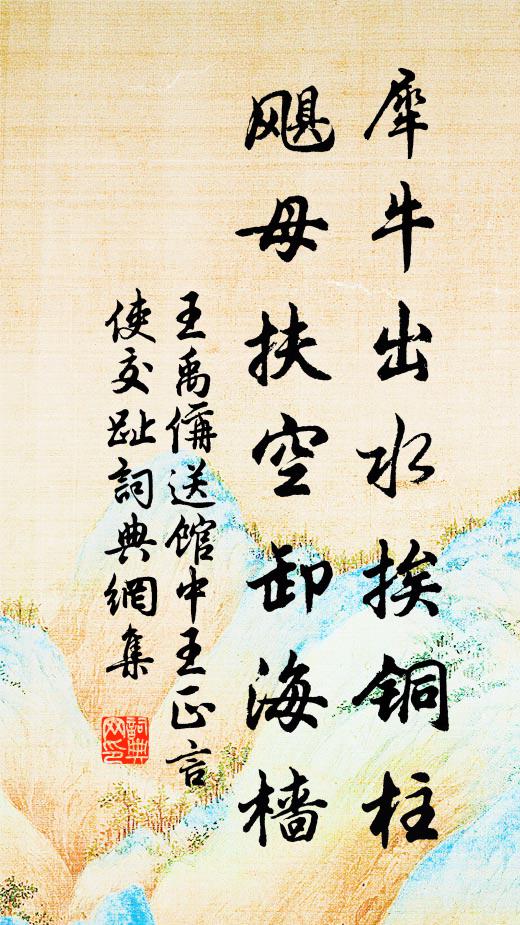 犀牛出水挨铜柱
飓母扶空卸海樯
王禹偁送馆中王正言
使交趾詞典網集
詞典
网印